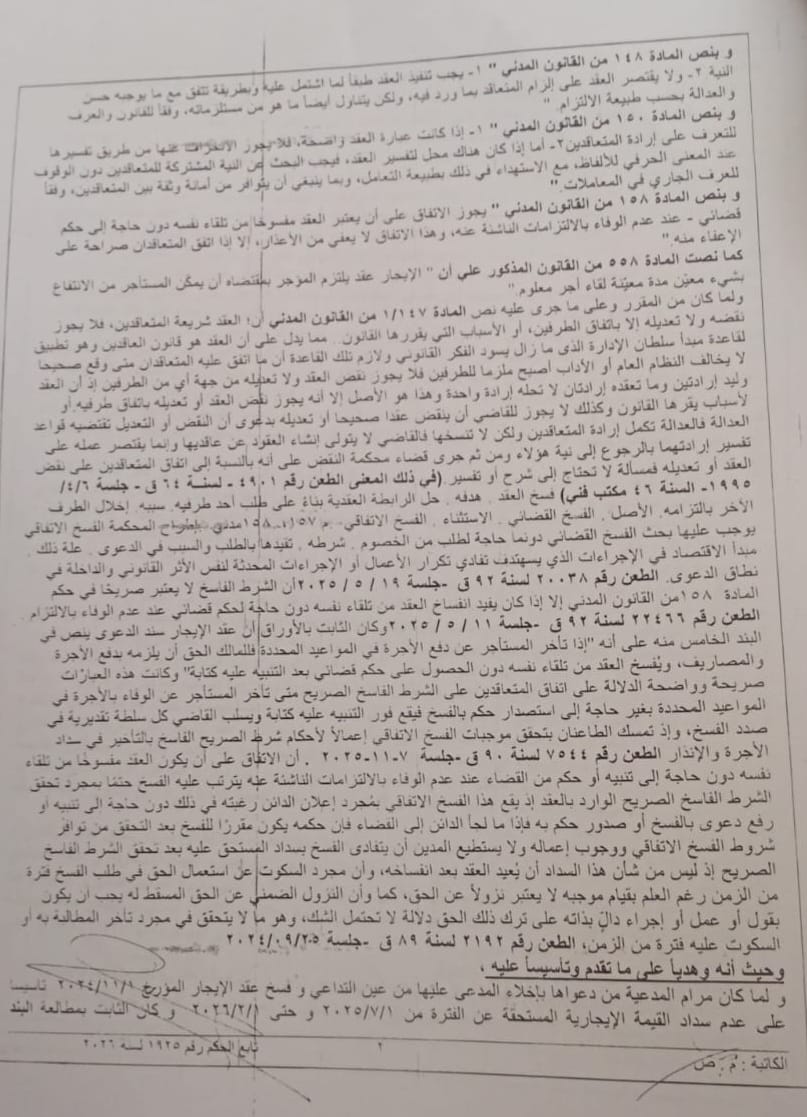 و بنص المادة ١٤٨ من القانون المدني " ١- يجب تنفيذ العقد طبقاً لما اشتمل عليه وبطريقة تتفق مع ما يوجبه حسن
النية ٢- ولا يقتصر العقد على إلزام المتعاقد بما ورد فيه، ولكن يتناول أيضاً ما هو من مستلزماته، وفقاً للقانون والعرف
والعدالة بحسب طبيعة الالتزام. "
و بنص المادة ١٥٠ من القانون المدني " ١- إذا كانت عبارة العقد واضحة، فلا يجوز الانحراف عنها من طريق تفسيرها
للتعرف على إرادة المتعاقدين ٢- أما إذا كان هناك محل لتفسير العقد، فيجب البحث عن النية المشتركة للمتعاقدين دون الوقوف
عند المعنى الحرفي للألفاظ، مع الاستهداء في ذلك بطبيعة التعامل، وبما ينبغي أن يتوافر من أمانة وثقة بين المتعاقدين، وفقاً
للعرف الجاري في المعاملات."
و بنص المادة ١٥٨ من القانون المدني " يجوز الاتفاق على أن يعتبر العقد مفسوخا من تلقاء نفسه دون حاجة إلى حكم
قضائي - عند عدم الوفاء بالالتزامات الناشئة عنه، وهذا الاتفاق لا يعفي من الأعذار، إلا إذا اتفق المتعاقدان صراحة على
الإعفاء منه."
كما نصت المادة ٥٥٨ من القانون المذكور علي أن " الإيجار عقد يلتزم المؤجر بمقتضاه أن يمكّن المستأجر من الانتفاع
بشيء معيّن مدة معيّنة لقاء أجر معلوم."
ولما كان من المقرر وعلى ما جرى عليه نص المادة ١/١٤٧ من القانون المدني أن: العقد شريعة المتعاقدين، فلا يجوز
نقضه ولا تعديله إلا باتفاق الطرفين، أو الأسباب التي يقررها القانون. مما يدل على أن العقد هو قانون العاقدين وهو تطبيق
لقاعدة مبدأ سلطان الإدارة الذى ما زال يسود الفكر القانوني ولازم تلك القاعدة أن ما اتفق عليه المتعاقدان متى وقع صحيحا
لا يخالف النظام العام أو الآداب أصبح ملزما للطرفين فلا يجوز نقض العقد ولا تعديله من جهة أي من الطرفين إذ أن العقد
وليد إرادتين وما تعقده إرادتان لا تحله إرادة واحدة وهذا هو الأصل إلا أنه يجوز نقض العقد أو تعديله باتفاق طرفيه أو
لأسباب يقرها القانون وكذلك لا يجوز للقاضي أن ينقض عقدا صحيحا أو تعديله بدعوى أن النقض أو التعديل تقتضيه قواعد
العدالة فالعدالة تكمل إرادة المتعاقدين ولكن لا تنسخها فالقاضي لا يتولى إنشاء العقود عن عاقديها وإنما يقتصر عمله على
تفسير إرادتهما بالرجوع إلى نية هؤلاء ومن ثم جرى قضاء محكمة النقض على أنه بالنسبة إلى اتفاق المتعاقدين على نقض
العقد أو تعديله فمسألة لا تحتاج إلى شرح أو تفسير. (في ذلك المعنى الطعن رقم ٤٩٠١ - لسنة ٦٤ ق - جلسة ٤/٦/
١٩٩٥- السنة ٤٦ مكتب فني) فسخ العقد. هدفه. حل الرابطة العقدية بناءً على طلب أحد طرفيه. سببه. إخلال الطرف
الآخر بالتزامه. الأصل. الفسخ القضائي. الاستثناء. الفسخ الاتفاقي. م ١٥٧، ١٥٨ مدني. المحكمة الفسخ الاتفاقي
يوجب عليها بحث الفسخ القضائي دونما حاجة لطلب من الخصوم. شرطه. تقيدها بالطلب والسبب في الدعوى. علة ذلك.
مبدأ الاقتصاد في الإجراءات الذي يستهدف تفادي تكرار الأعمال أو الإجراءات المحدثة لنفس الأثر القانوني والداخلة في
نطاق الدعوى. الطعن رقم ٢٠٠٣٨ لسنة ٩٢ ق -جلسة ١٩ / ٥ / ٢٠٢٥ أن الشرط الفاسخ لا يعتبر صريحًا في حكم
المادة ١٥٨ من القانون المدني إلا إذا كان يفيد انفساخ العقد من تلقاء نفسه دون حاجة لحكم قضائي عند عدم الوفاء بالالتزام
الطعن رقم ٢٢٤٦٦ لسنة ٩٢ ق -جلسة ١١ / ٥ / ٢٠٢٥ وكان الثابت بالأوراق أن عقد الإيجار سند الدعوى ينص في
البند الخامس منه على أنه "إذا تأخر المستأجر عن دفع الأجرة في المواعيد المحددة فللمالك الحق أن يلزمه بدفع الأجرة
والمصاريف، ويُفسخ العقد من تلقاء نفسه دون الحصول على حكم قضائي بعد التنبيه عليه كتابة" وكانت هذه العبارات
صريحة وواضحة الدلالة على اتفاق المتعاقدين على الشرط الفاسخ الصريح متى تأخر المستأجر عن الوفاء بالأجرة في
المواعيد المحددة بغير حاجة إلى استصدار حكم بالفسخ فيقع فور التنبيه عليه كتابة ويسلب القاضي كل سلطة تقديرية في
صدد الفسخ، وإذ تمسك الطاعنان بتحقق موجبات الفسخ الاتفاقي إعمالاً لأحكام شرط الصريح الفاسخ بالتأخير في سداد
الأجرة والإنذار الطعن رقم ٧٥٤٤ لسنة ٩٠ ق -جلسة ٧-١١-٢٠٢٥ . أن الاتفاق على أن يكون العقد مفسوخًا من تلقاء
نفسه دون حاجة إلى تنبيه أو حكم من القضاء عند عدم الوفاء بالالتزامات الناشئة عنه يترتب عليه الفسخ حتمًا بمجرد تحقق
الشرط الفاسخ الصريح الوارد بالعقد إذ يقع هذا الفسخ الاتفاقي بمُجرد إعلان الدائن رغبته في ذلك دون حاجة إلى تنبيه أو
رفع دعوى بالفسخ أو صدور حكم به فإذا ما لجأ الدائن إلى القضاء فإن حكمه يكون مقررًا للفسخ بعد التحقق من توافر
شروط الفسخ الاتفاقي ووجوب إعماله ولا يستطيع المدين أن يتفادى الفسخ بسداد المستحق عليه بعد تحقق الشرط الفاسخ
الصريح إذ ليس من شأن هذا السداد أن يُعيد العقد بعد انفساخه، وأن مجرد السكوت عن استعمال الحق في طلب الفسخ فترة
من الزمن رغم العلم بقيام موجبه لا يعتبر نزولاً عن الحق، كما وأن النزول الضمني عن الحق المسقط له يجب أن يكون
بقول أو عمل أو إجراء دالٍ بذاته على ترك ذلك الحق دلالة لا تحتمل الشك، وهو ما لا يتحقق في مجرد تأخر المطالبة به أو
السكوت عليه فترة من الزمن، الطعن رقم ٢١٩٢ لسنة ٨٩ ق -جلسة ٢٠٢٤/٠٩/٢٥
وحيث أنه وهدياً على ما تقدم وتأسيساً عليه ،
و لما كان مرام المدعية من دعواها بإخلاء المدعى عليها من عين التداعي و فسخ عقد الإيجار المؤرخ ٢٠٢٤/١١/١ تأسيسا
على عدم سداد القيمة الإيجارية المستحقة عن الفترة من ٢٠٢٥/٧/١ و حتى ٢٠٢٦/٢/١ و كان الثابت بمطالعة البند
الكاتبة : م . ض
٢
تابع الحكم رقم ١٩٢٥ لسنة ٢٠٢٦